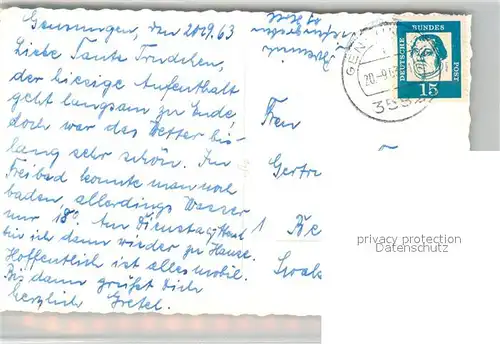 Gensungen, den 20.9.63
Liebe Tante Trudchen,
der hiesige Aufenthalt
geht langsam zu Ende,
doch war das Wetter bis-
lang sehr schön. Im
Freibad konnte man noch
baden, allerdings Wasser
nur 18°. Am Dienstag
bin ich dann wieder zu Hause.
Hoffentlich ist alles mobil.
Bis dann grüßt Dich
herzlich Gretel.
DEUTSCHE BUNDES POST
15
GEN
20.-9.6
35
Frau
Gertr
1
Be
privacy protection
Datenschutz